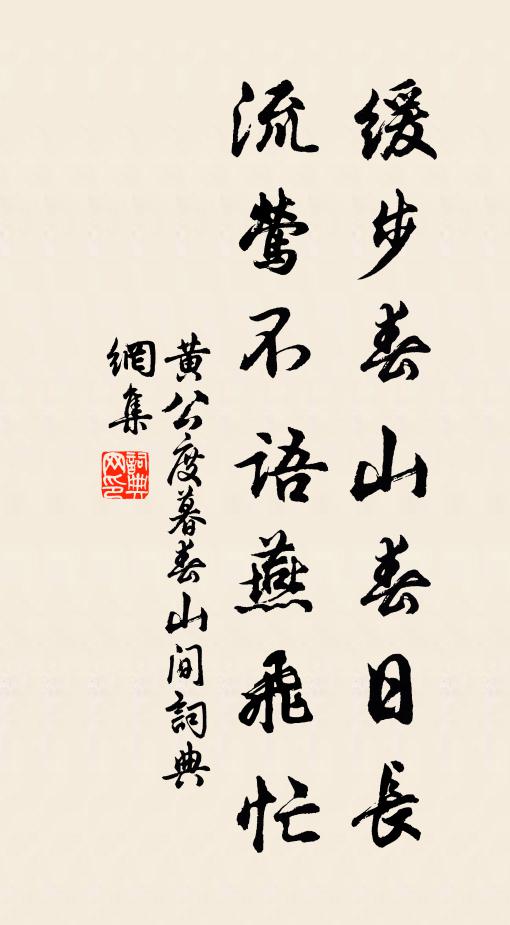 緩步春山春日長
流鶯不語燕飛忙
黃公度暮春山间詞典
網集
詞典网印